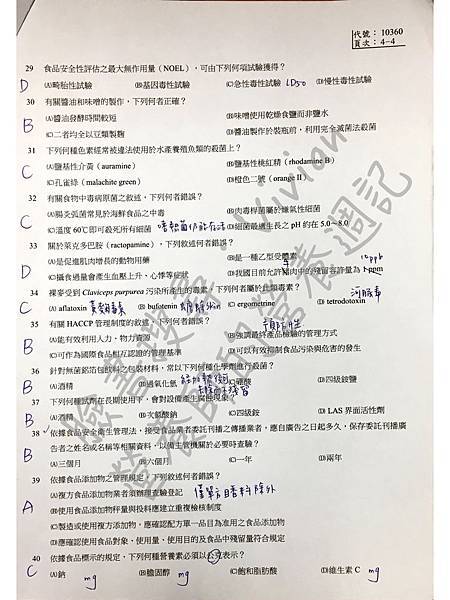 代號：10360
頁次：4-4
D 29 食品安全性評估之最大無作用量（NOEL），可由下列何項試驗獲得？
(A)畸胎性試驗 (B)基因毒性試驗 (C)急性毒性試驗 LD50 (D)慢性毒性試驗
B 30 有關醬油和味噌的製作，下列何者正確？
(A)醬油發酵時間較短 (B)味噌使用乾燥食鹽而非鹽水
(C)二者均全以豆類製麴 (D)醬油製作於裝瓶前，利用完全滅菌法殺菌
C 31 下列何種色素經常被違法使用於水產養殖魚類的殺菌上？
(A)鹽基性介黃（auramine） (B)鹽基性桃紅精（rhodamine B）
(C)孔雀綠（malachite green） (D)橙色二號（orange II）
C 32 有關食物中毒病原菌之敘述，下列何者錯誤？
(A)腸炎弧菌常見於海鮮食品之中毒 (B)肉毒桿菌屬於嫌氣性細菌
(C)溫度 60℃即可殺死所有細菌 (D)細菌最適生長之 pH 約在 5.0～8.0
D 33 關於萊克多巴胺（ractopamine），下列敘述何者錯誤？
(A)是促進肌肉增長的動物用藥 (B)是一種乙型受體素
(C)攝食過量會產生血壓上升、心悸等症狀 (D)我國目前允許豬肉中的殘留容許量為 1 ppm 10 ppb
C 34 裸麥受到 Claviceps purpurea 污染所產生的毒素，下列何者屬於此類毒素？
(A) aflatoxin 黃麴毒素 (B) bufotenin (C) ergometrine (D) tetrodotoxin 河豚毒
B 35 有關 HACCP 管理制度的敘述，下列何者錯誤？ 預防性
(A)能有效利用人力，物力資源 (B)強調最終產品檢驗的管理方式
(C)可作為國際食品相互認證的管理基準 (D)可以有效抑制食品污染與危害的發生
B 36 針對無菌鋁箔包飲料之包裝材料，常以下列何種化學劑進行殺菌？
(A)酒精 (B)過氧化氫 (C)硼酸 (D)四級銨鹽
B 37 下列何種試劑在長期使用下，會對設備產生腐蝕現象？
(A)酒精 (B)次氯酸鈉 (C)四級銨 (D) LAS 界面活性劑
B 38 依據食品安全衛生管理法，接受食品業者委託刊播之傳播業者，應自廣告之日起多久，保存委託刊播廣
告者之姓名或名稱等相關資料，以備主管機關於必要時查驗？
(A)三個月 (B)六個月 (C)一年 (D)兩年
A 39 依據食品添加物之管理規定，下列敘述何者錯誤？
(A)複方食品添加物業者須辦理查驗登記 僅單方 香料除外
(B)使用食品添加物秤量與投料應建立重複檢核制度
(C)製造或使用複方添加物，應確認配方單一品目為准用之食品添加物
(D)應確認使用食品對象、使用量、使用目的及食品中殘留量符合規定
C 40 依據食品標示的規定，下列何種營養素必須以公克表示？
(A)鈉 mg (B)膽固醇 mg (C)飽和脂肪酸 (D)維生素 C mg